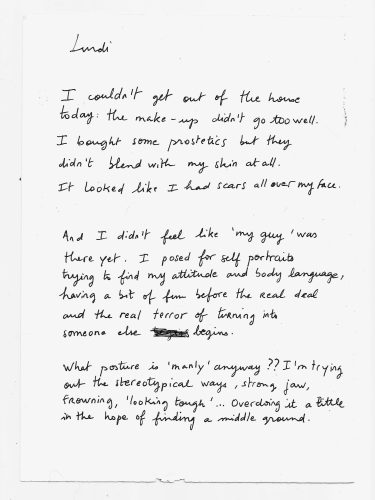 Lundi
I couldn't get out of the house
today: the make-up didn't go too well.
I bought some prostetics but they
didn't blend with my skin at all.
It looked like I had scars all over my face.
And I didn't feel like 'my guy' was
there yet. I posed for self portraits
trying to find my attitude and body language,
having a bit of fun before the real deal
and the real terror of turning into
someone else begins.
What posture is 'manly' anyway?? I'm trying
out the stereotypical ways, strong jaw,
frowning, 'looking tough'... Overdoing it a little
in the hope of finding a middle ground.